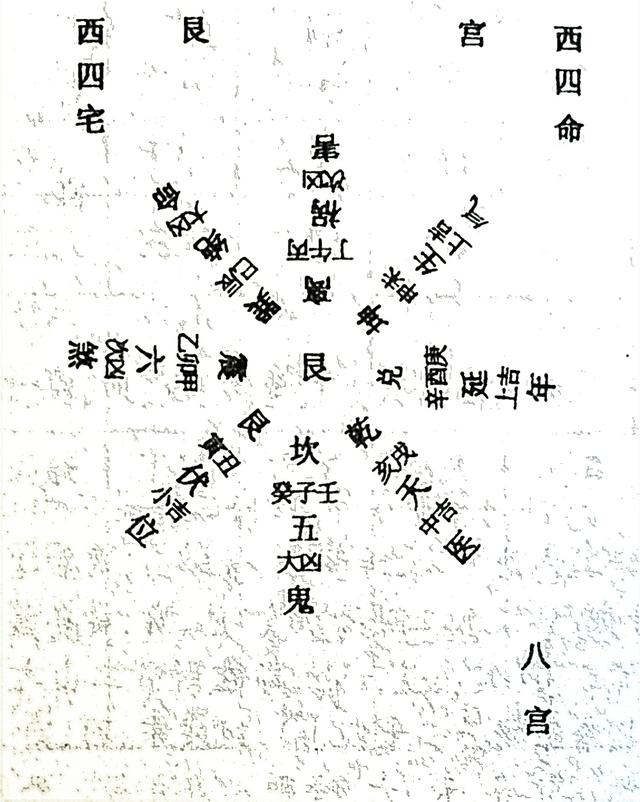 西四宅
艮宫
西四命
离
丁午丙
祸
次凶
害
坤
申未
生
上吉
气
兑
辛酉庚
延
上吉
年
乾
亥戌
天
中吉
医
坎
癸子壬
五
大凶
鬼
艮
寅丑
伏
小吉
位
震
乙卯甲
六
次凶
煞
巽
巳辰
绝
大凶
命
艮
八宫